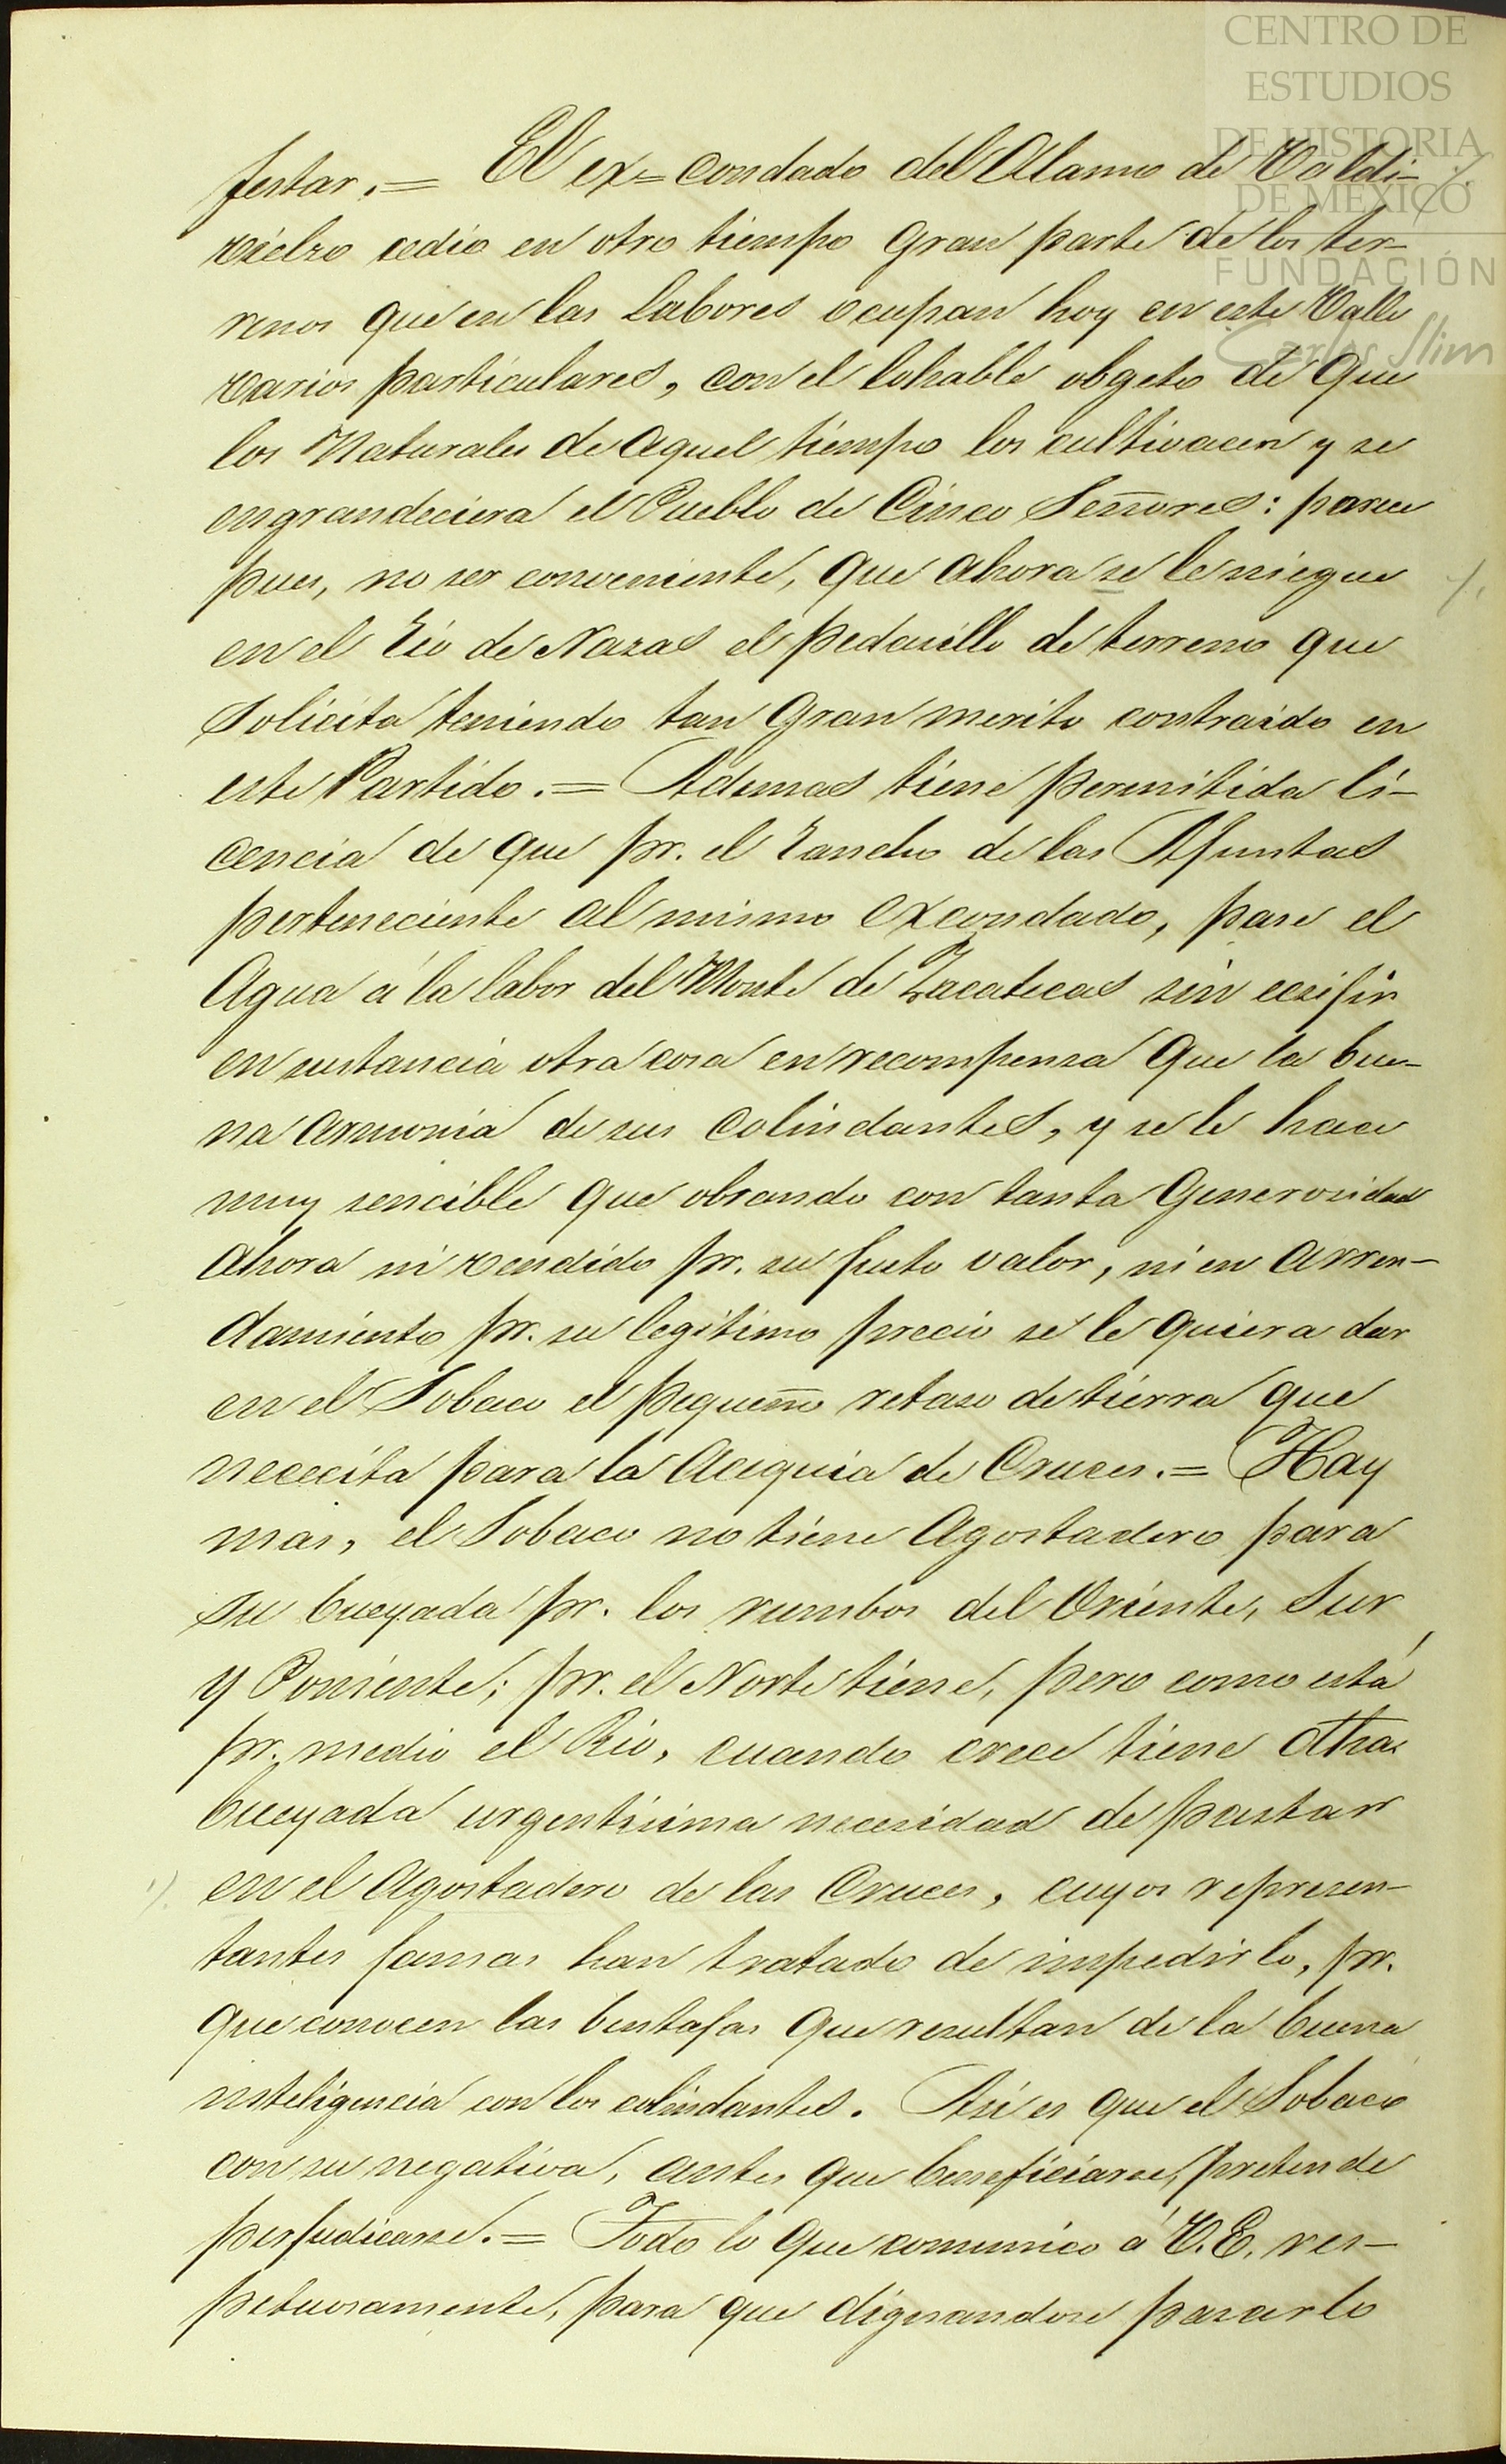 CENTRO DE
ESTUDIOS
DE HISTORIA
DE MÉXICO
FUNDACIÓN
Carlos Slim
festar.= El ex=condado del Alamo de Valdi-
vielzo cedio en otro tiempo gran parte de los ter-
renos que en las labores ocupan hoy en este Valle
varios particulares, con el lohable obgeto de que
los Naturales de aquel tiempo los cultivacen y se
engrandeciera el Pueblo de Cinco Señores: parece
pues, no ser conveniente, que ahora se le niegue
en el Rio de Nazas el pedasillo de terreno que
solicita teniendo tan gran merito contraido en
este Partido.= Ademas tiene permitida li-
cencia de que pr. el Rancho de las Juntas
perteneciente al mismo excondado, pase el
Agua á la labor del Monte de Zacatecas sin ecsijir
en sustancia otra cosa en recompensa que la bue-
na armonia de sus colindantes, y se le hace
muy sencible que obrando con tanta generosidad
ahora ni vendido pr. su justo valor, ni en arren-
damiento pr. su legitimo precio se le quiera dar
en el Sobaco el pequeño retaso de tierra que
nececita para la Acequia de Cruces.= Hay
mas, el Sobaco no tiene Agostadero para
su bueyada pr. los rumbos del Oriente, Sur
y Poniente; pr. el Norte tiene, pero como está
pr. medio el Rio, cuando crece tiene dha
bueyada urgentisima necesidad de pastar
en el Agostadero de las Cruces, cuyos represen-
tantes jamas han tratado de impedirlo, pr.
que conocen las bentajas que resultan de la buena
inteligencia con los colindantes. Asi es que el Sobaco
con su negativa, antes que beneficiarse, pretende
perjudicarse.= Todo lo que comunico á V.E. res-
petuosamente, para que dignandose pasarlo